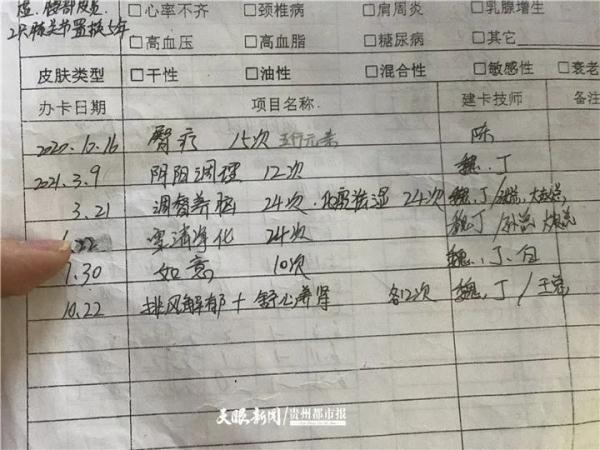 虚.腰部
□心率不齐 □颈椎病 □肩周炎 □乳腺增生
2只膝关节置换5年
□高血压 □高血脂 □糖尿病 □其它
皮肤类型 □干性 □油性 □混合性 □敏感性 □衰老
办卡日期 项目名称. 建卡技师 备注
2020.12.16 臀疗 15次 五行元素 陈
2021.3.9 阴阳调理 12次 魏.丁
3.21 调督养脑 24次. 祛湿 24次 魏.丁/
.22 净化 24次 魏丁/
7.30 如意 10次 魏.丁.白
10.22 排风解郁+舒心养肾 各12次 魏.丁/王总
天眼新闻/贵州都市报